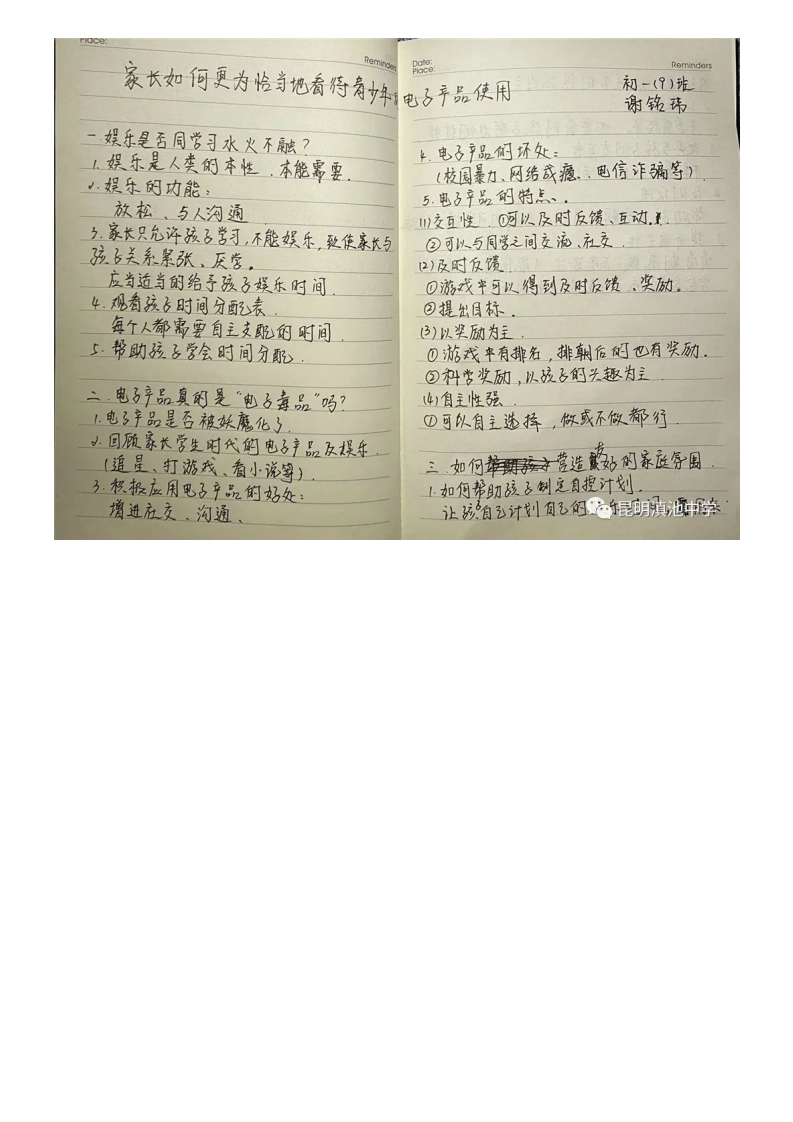 Place:
Reminders
家长如何更为恰当地看待青少年的电子产品使用
一.娱乐是否同学习水火不融?
1.娱乐是人类的本性、本能需要.
2.娱乐的功能:
放松、与人沟通.
3.家长只允许孩子学习,不能娱乐,致使家长与
孩子关系紧张、厌学。
应当适当的给予孩子娱乐时间.
4.观看孩子时间分配表.
每个人都需要自主支配的时间.
5.帮助孩子学会时间分配.
二.电子产品真的是“电子毒品”吗?
1.电子产品是否被妖魔化了.
2.回顾家长学生时代的电子产品及娱乐.
(追星、打游戏、看小说等).
3.积极应用电子产品的好处:
增进社交、沟通、
Date:
Place:
Reminders
初一(9)班
谢铭玮
4.电子产品的坏处:
(校园暴力、网络成瘾、电信诈骗等).
5.电子产品的特点、.
(1)交互性.①可以及时反馈、互动.
②可以与同学之间交流、社交.
(2)及时反馈.
①游戏中可以得到及时反馈、奖励。
②提出目标.
(3)以奖励为主.
①游戏中有排名,排朝后的也有奖励。
②科学奖励,以孩子的兴趣为主.
(4)自主性强.
①可以自主选择,做或不做都行.
三.如何营造良好的家庭氛围.
1.如何帮助孩子制定自控计划.
让孩子自己计划自己的
昆明滇池中学